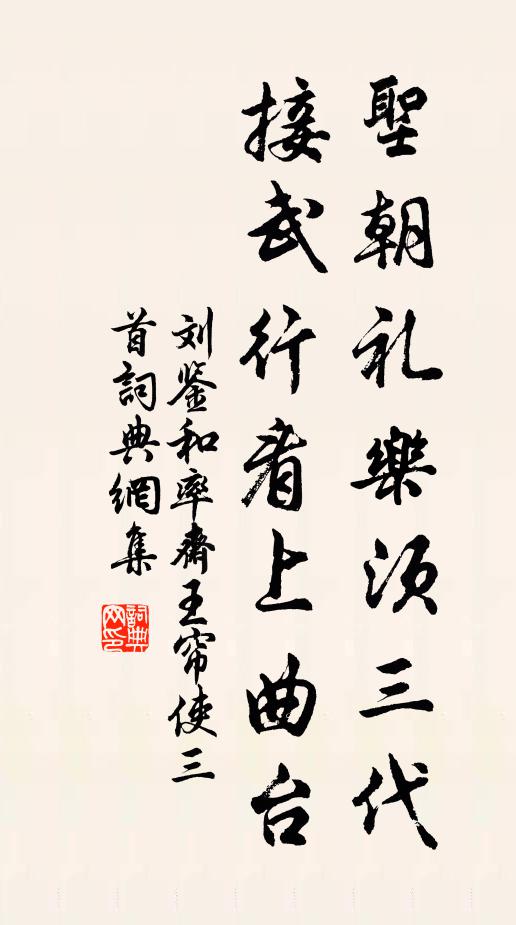 聖朝礼樂須三代
接武行看上曲台
刘鉴和率齋王帘使三
首詞典網集
詞典网印